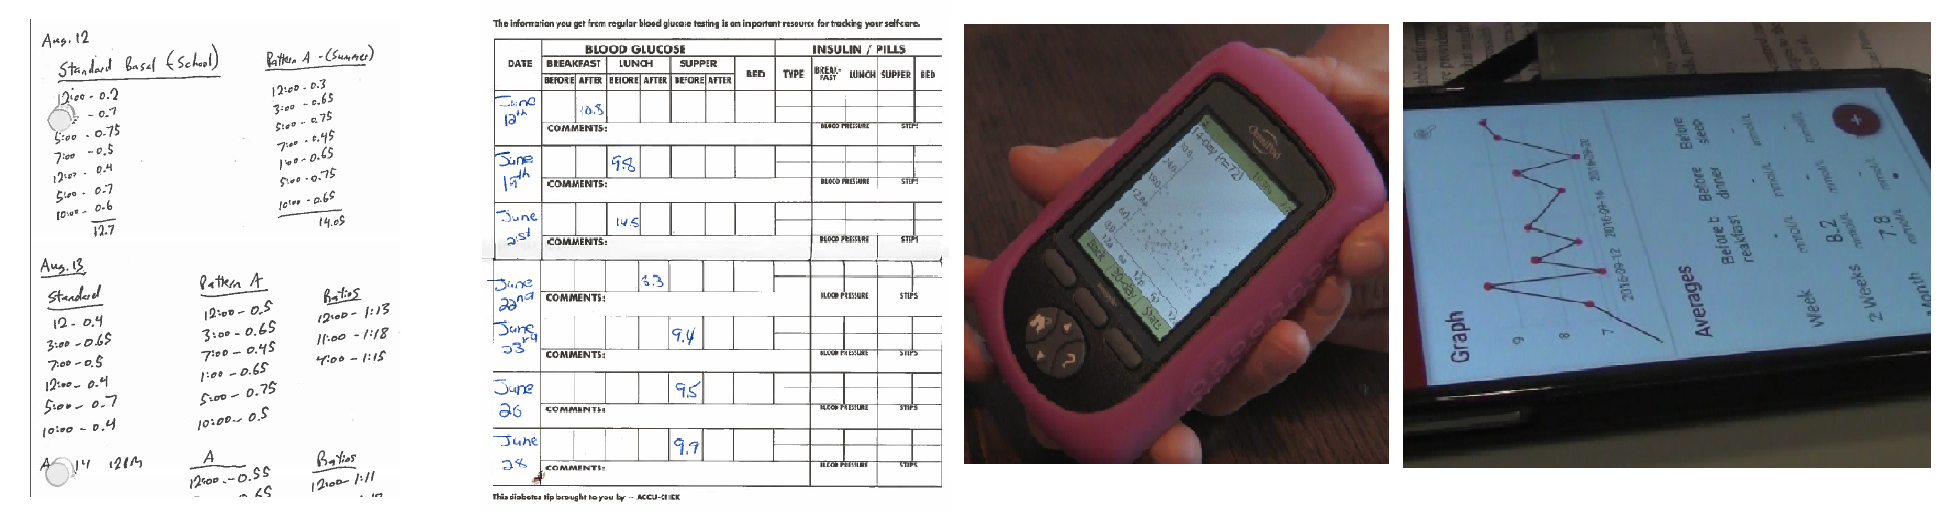 Aug. 12
Standard Basal (School)
12:00 - 0.2
- 0.7
5:00 - 0.75
7:00 - 0.5
12:00 - 0.4
5:00 - 0.7
10:00 - 0.6
12.7
Pattern A - (Summer)
12:00 - 0.3
3:00 - 0.65
5:00 - 0.75
7:00 - 0.45
1:00 - 0.65
5:00 - 0.75
10:00 - 0.65
14.05
Aug. 13
Standard
12 - 0.4
3:00 - 0.65
7:00 - 0.5
12:00 - 0.4
5:00 - 0.7
10:00 - 0.4
Pattern A
12:00 - 0.5
3:00 - 0.65
7:00 - 0.45
1:00 - 0.65
5:00 - 0.75
10:00 - 0.5
Ratios
12:00 - 1:13
11:00 - 1:18
4:00 - 1:15
14
A
12:00 - 0.55
Ratios
12:00 - 1:11
The information you get from regular blood glucose testing is an important resource for tracking your selfcare.
DATE BLOOD GLUCOSE INSULIN / PILLS
BREAKFAST LUNCH SUPPER BED TYPE BREAK-FAST LUNCH SUPPER BED
BEFORE AFTER BEFORE AFTER BEFORE AFTER
June 12th 10.8
COMMENTS: BLOOD PRESSURE STEPS
June 19th 9.8
COMMENTS: BLOOD PRESSURE STEPS
June 21st 14.5
COMMENTS: BLOOD PRESSURE STEPS
June 22nd 3.3
COMMENTS: BLOOD PRESSURE STEPS
June 23rd 9.4
COMMENTS: BLOOD PRESSURE STEPS
June 26 9.5
COMMENTS: BLOOD PRESSURE STEPS
June 28 9.7
COMMENTS: BLOOD PRESSURE STEPS
This diabetes tip brought to you by - ACCU-CHEK
OmniPod
14-day (n=72)
Back 30-day Stats
Graph
9
8
7
2016-09-12 2016-09-16 2016-09-20
Averages
Before breakfast Before dinner Before sleep
Week - - -
mmol/L mmol/L mmol/L
2 Weeks 8.2 -
mmol/L mmol/L
Month 7.8
mmol/L
+